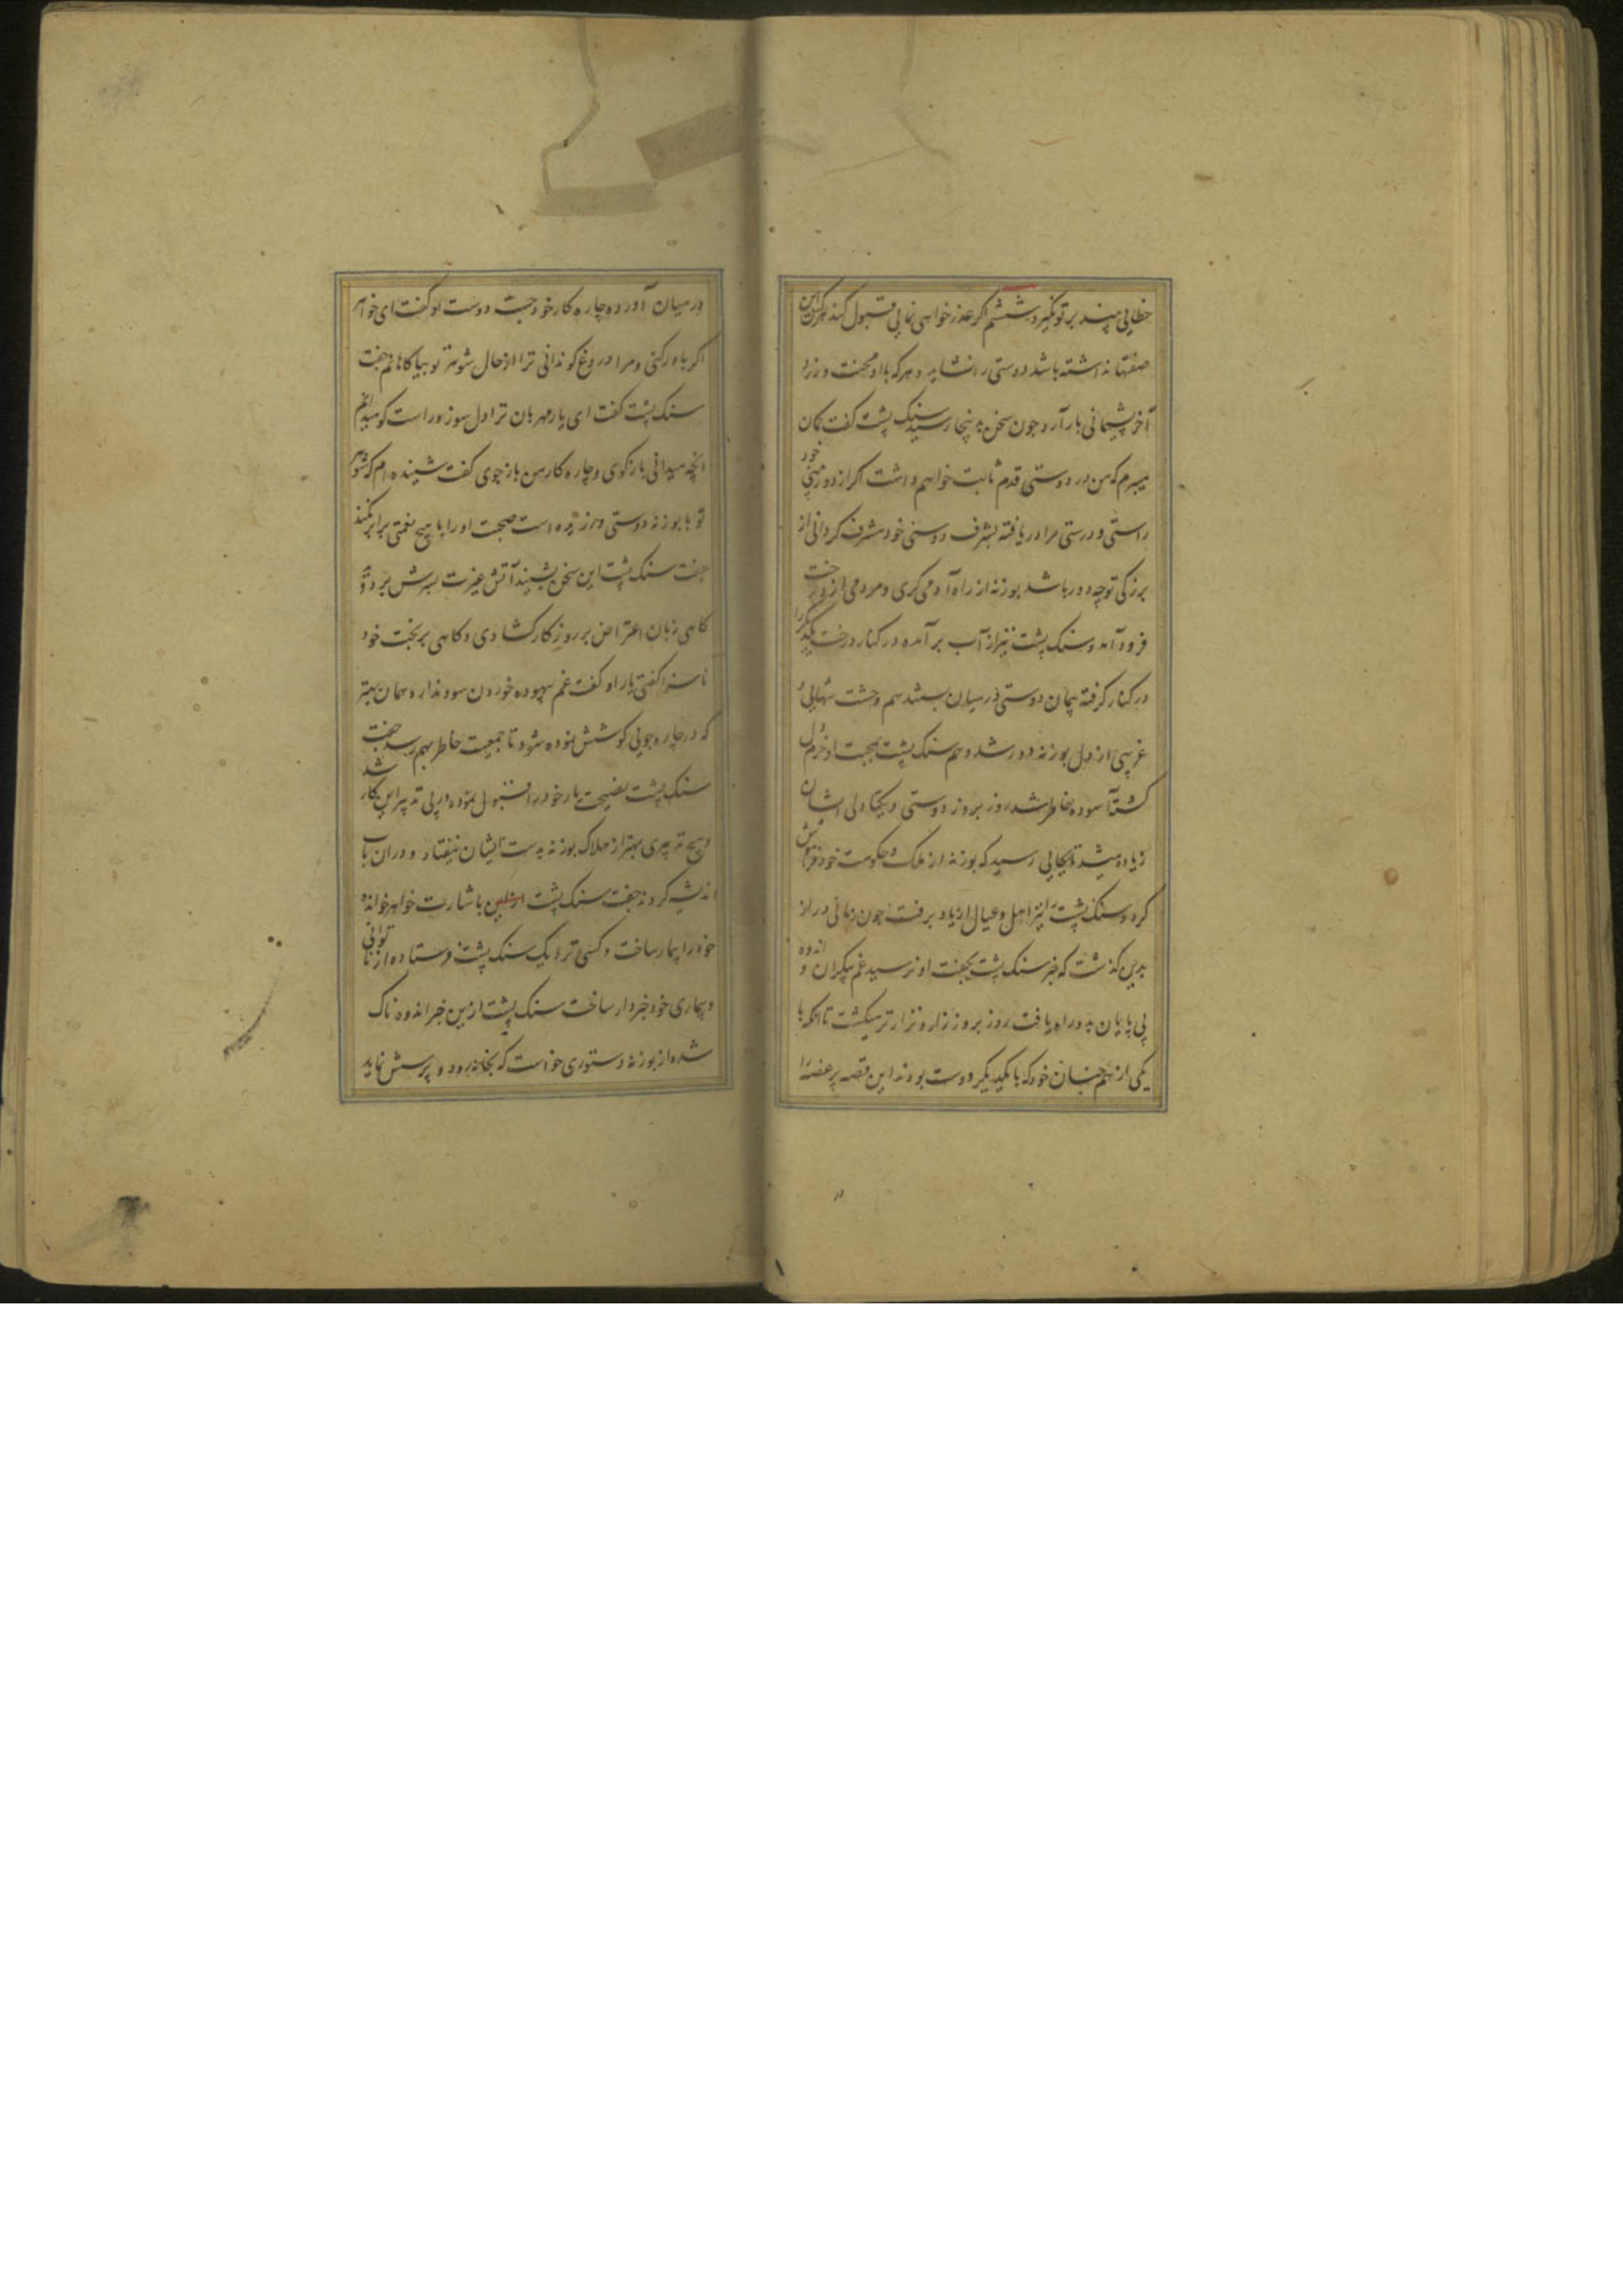 خطایی بیند بر تو نگیرد ششم اگر عذر خواهی نمایی قبول کند هر که این
صفتها نداشته باشد دوستی را نشاید و هر که با او محبت ورزد
آخر پشیمانی بار آرد چون سخن بدینجا رسید سنک پشت کفت کمان
میبرم که من در دوستی قدم ثابت خواهم داشت اکر از دور بینی خود
راستی و درستی مرا دریافته بشرف دوستی خود مشرف کردانی از
بزرکی تو چه دور باشد بوزنه از راه آدمی کری و مردمی از درخت
فرود آمد و سنک پشت نیز از آب برآمده در کنار درخت یکدیکر را
در کنار کرفته پیمان دوستی در میان بستند هم وحشت تنهایی و
غریبی از دل بوزنه دور شد و هم سنک پشت بمحبت او خرم دل
کشت آسوده خاطر شد روز بروز دوستی و یکتا دلی ایشان
زیاده میشد تا بجایی رسید که بوزنه از ملک و حکومت خود فراموش
کرد و سنک پشت را نیز اهل و عیال از یاد برفت چون زمانی دراز
بدین کذشت که خبر سنک پشت بجفت او نرسید غم بیکران و اندوه
بی پایان بدو راه یافت روز بروز زار و نزار تر میکشت تا آنکه با
یکی از هم جنسان خود که با یکدیکر دوست بودند این قصه پر غصه را
در میان آورده چاره کار خود جست دوست او کفت ای خواهر
اکر باور کنی و مرا دروغ کو ندانی ترا از حال شوهر تو بیاکاهانم جفت
سنک پشت کفت ای یار مهربان ترا دل سوز و راست کو میدانم
آنچه میدانی باز کوی و چاره کار من باز جوی کفت شینده ام که شوهر
تو با بوزنه دوستی ورزیده است صحبت او را با هیچ نعمتی برابر نکند
جفت سنک پشت این سخن بشیند آتش غیرت بسرش بر دوید
کاهی زبان اعتراض بر روزکار کشادی و کاهی بر بخت خود
ناسزا کفتی یار او کفت غم بیهوده خوردن سود ندارد همان بهتر
که در چاره جویی کوشش نموده شود تا جمعیت خاطر بهم رسد جفت
سنک پشت نصیحت یار خود را قبول نموده در پی تدبیر این کار شد
و هیچ تدبیری بهتر از هلاک بوزنه بدست ایشان نیفتاد و دران باب
اندیشه کردند جفت سنک پشت باشارت خواهر خوانده
خود را بیمار ساخت و کسی نزدیک سنک پشت فرستاده از ناتوانی
و بیماری خود خبردار ساخت سنک پشت ازین خبر اندوه ناک
شده از بوزنه دستوری خواست که بخانه رود و پرسش نماید